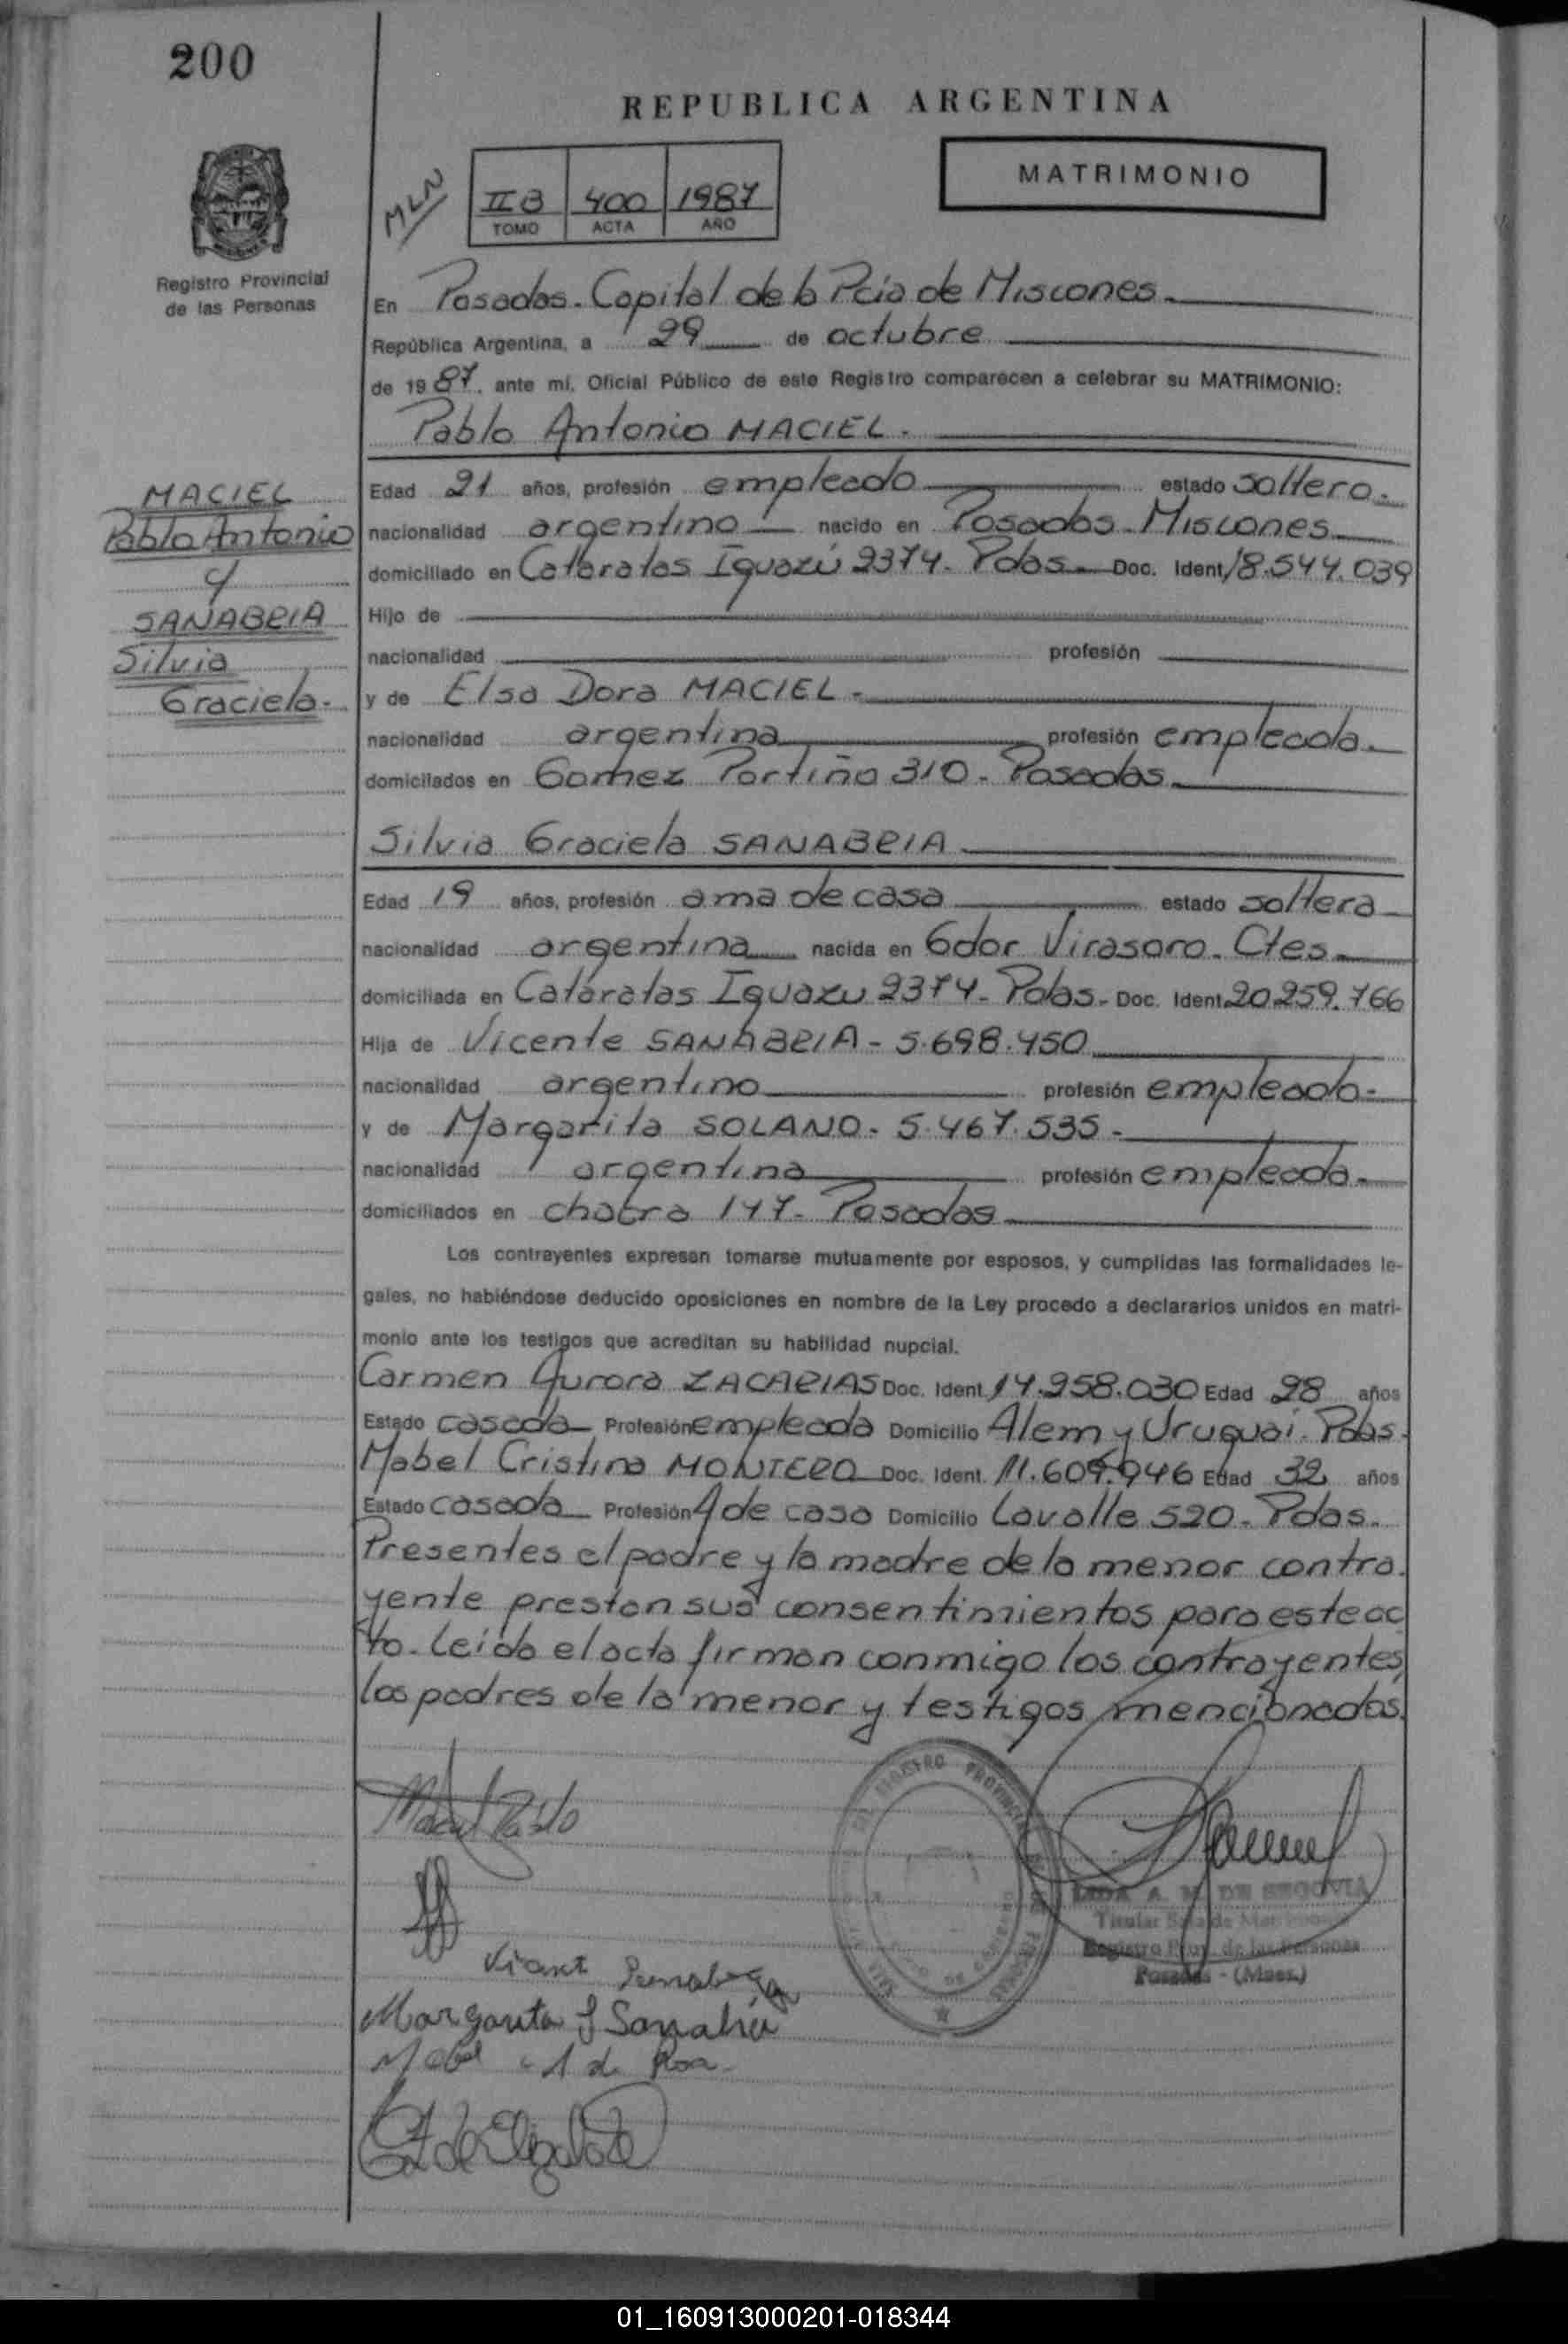 200
REPUBLICA ARGENTINA
MATRIMONIO
MLN
II B 400 1987
TOMO ACTA AÑO
Registro Provincial
de las Personas
En Posadas - Capital de la Pcia de Misiones.
República Argentina, a 29 de octubre
de 1987. ante mí, Oficial Público de este Registro comparecen a celebrar su MATRIMONIO:
Pablo Antonio MACIEL.
MACIEL
Pablo Antonio
y
SANABRIA
Silvia
Graciela.
Edad 21 años, profesión empleado estado soltero.
nacionalidad argentino nacido en Posadas - Misiones
domiciliado en Cataratas Iguazú 2374. Pdas. Doc. Ident 18.544.039
Hijo de
nacionalidad profesión
y de Elsa Dora MACIEL.
nacionalidad argentina profesión empleada.
domiciliados en Gomez Portiño 310 - Posadas
Silvia Graciela SANABRIA
Edad 19 años, profesión ama de casa estado soltera
nacionalidad argentina nacida en Gdor Virasoro. Ctes
domiciliada en Cataratas Iguazu 2374 - Pdas. Doc. Ident. 20.259.766
Hija de Vicente SANABRIA - 5.698.450
nacionalidad argentino profesión empleado.
y de Margarita SOLANO. 5.467.535.
nacionalidad argentina profesión empleada.
domiciliados en chacra 147 - Posadas
Los contrayentes expresan tomarse mutuamente por esposos, y cumplidas las formalidades le-
gales, no habiéndose deducido oposiciones en nombre de la Ley procedo a declararlos unidos en matri-
monio ante los testigos que acreditan su habilidad nupcial.
Carmen Aurora ZACARIAS Doc. Ident. 14.258.030 Edad 28 años
Estado casada Profesión empleada Domicilio Alem y Uruguai. Pdas.
Mabel Cristina MONTERO Doc. Ident. 11.609.946 Edad 32 años
Estado casada Profesión A de casa Domicilio Lavalle 520 - Pdas.
Presentes el padre y la madre de la menor contra.
yente prestan sus consentimientos para este ac
to. Leída el acta firman conmigo los contrayentes,
los padres de la menor y testigos mencionados.
Maciel Pablo
LIDA A. M. DE SEGOVIA
Titular Sala de Matrimonios
Registro Prov. de las Personas
Posadas - (Mnes.)
Margarita S Sanabria
01_160913000201-018344